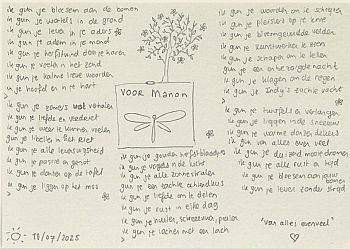 ik gun je bloesem aan de bomen
ik gun je wortels in de grond
ik gun je leven in je aders
ik gun je adem in je mond
ik gun je herfstwind door je haren
ik gun je voeten in het zand
ik gun je kalme lieve woorden
in je hoofd en in het hart
ik gun je zomers vol verhalen
ik gun je liefde en verdriet
ik gun je weer te kunnen voelen
ik gun je libellen in het riet
ik gun je alle levenslust
ik gun je passie en genot
ik gun je dansen op de tafel
ik gun je liggen op het mos
10/07/2025
VOOR Manon
ik gun je gouden herfstblaadjes
ik gun je vogels in de lucht
ik gun je alle zonnestralen
ik gun je een zachte
ik gun je liefde om te delen
ik gun je rust in elke dag
ik gun je huilen, schreeuwen, praten
ik gun je lachen met een lach
ik gun je woorden om te schrijven
ik gun je pleisters op je knie
ik gun je bloemgevulde velden
ik gun je kunstwerken
ik gun je schapen om te tellen
ik gun je een onbezorgde nacht
ik gun je klagen over de regen
ik gun je
ik gun je knuffels en verlangen
ik gun je liggen in de sneeuw
ik gun je warme donzen dekens
ik gun je van alles even veel
ik gun je duizend mooie dromen
ik gun je alle rust en tijd
ik gun je bloesem aan jouw bomen
ik gun je leven zonder strijd
'van alles evenveel'